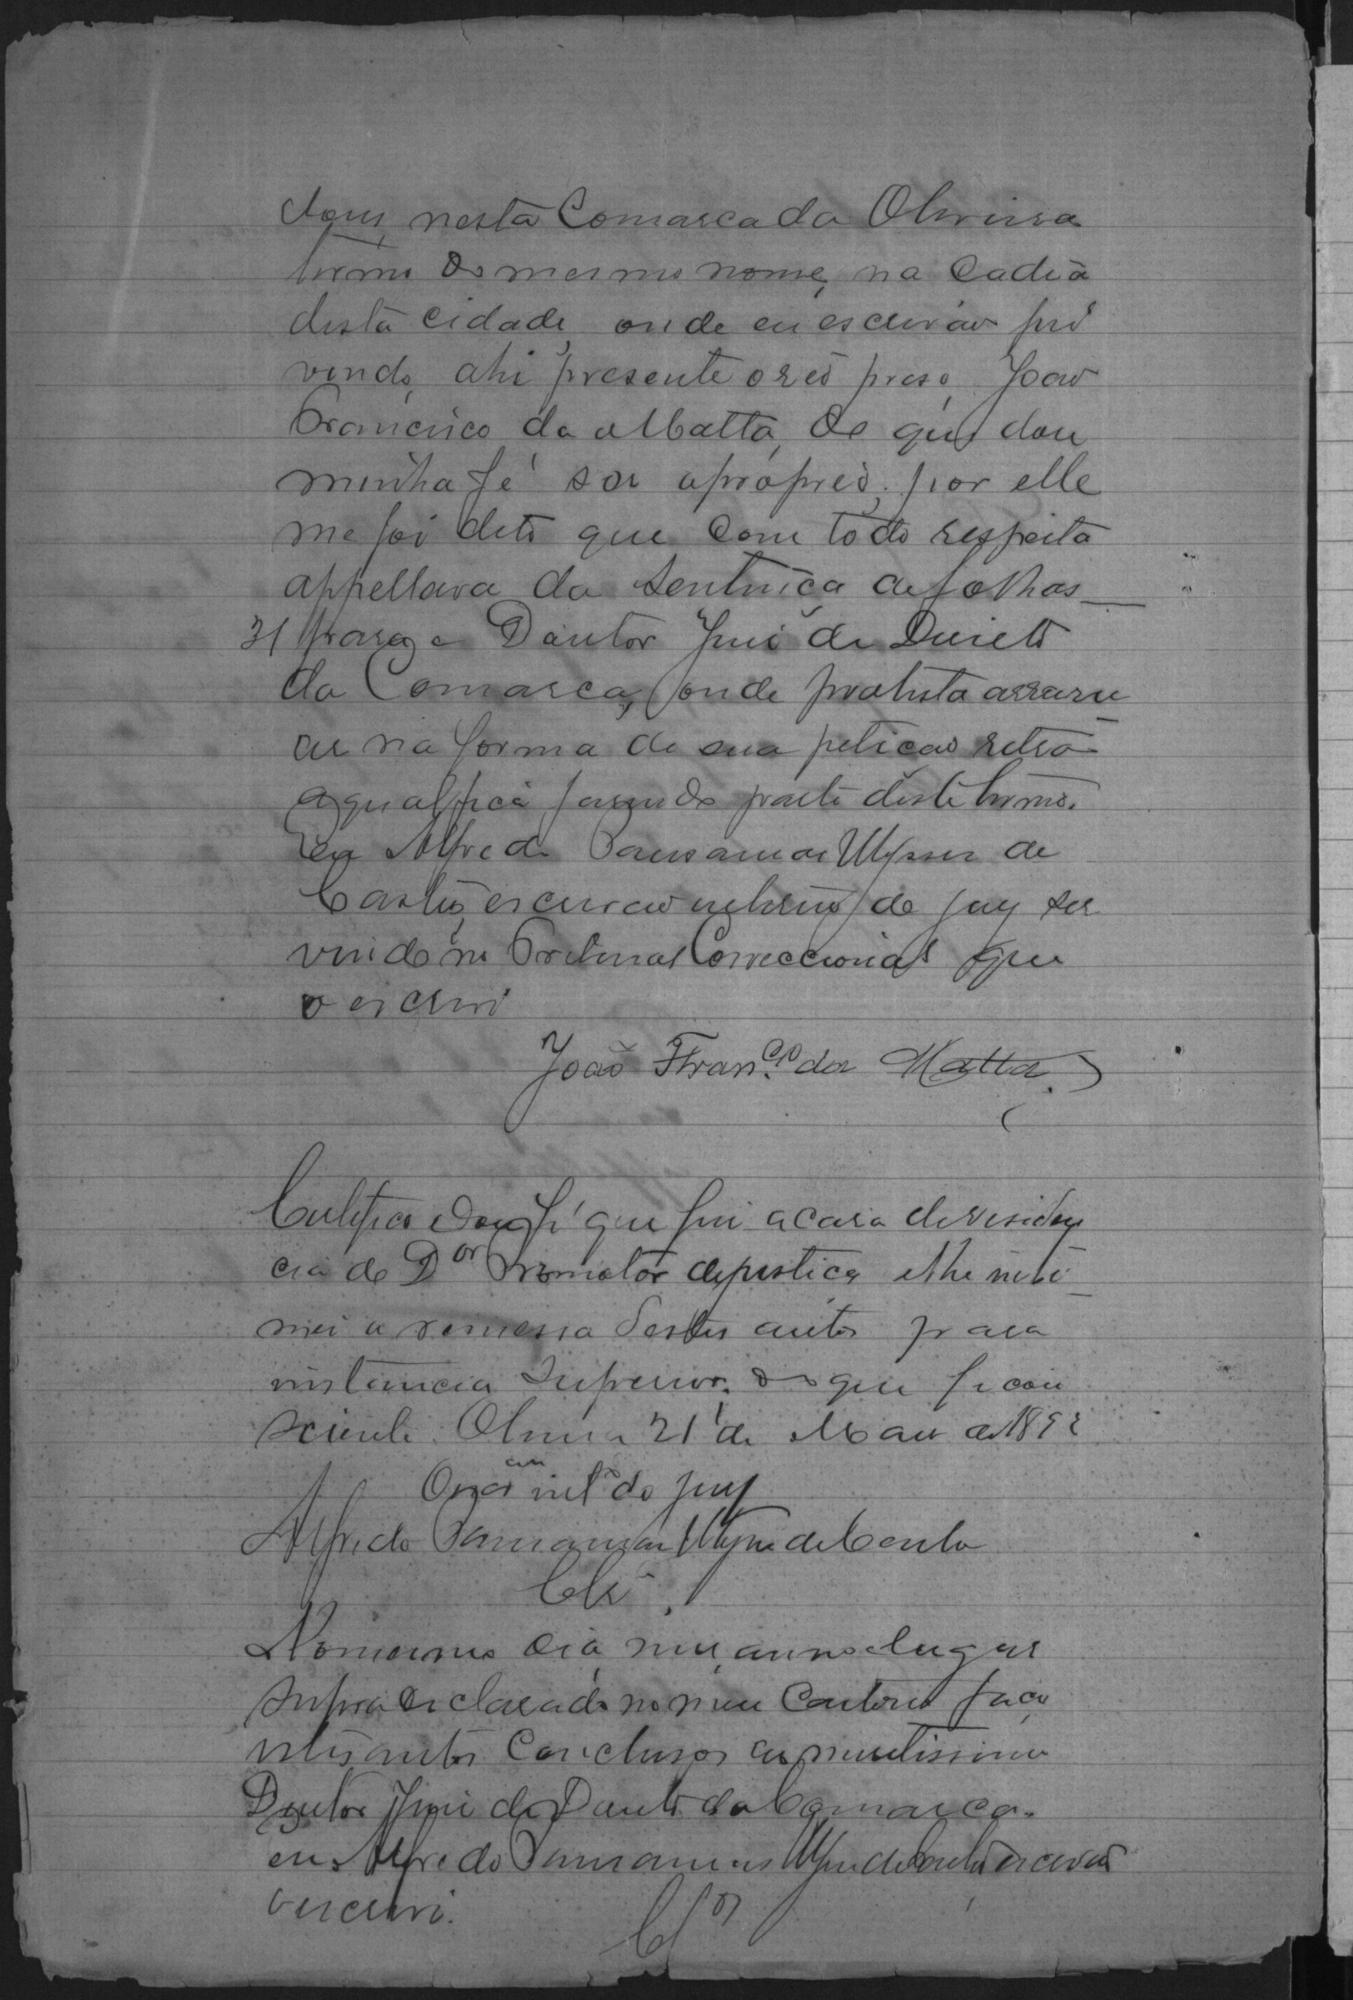 dous, nesta Comarca da Oliveira
termo do mesmo nome, na Cadeia
desta cidade, onde eu escrivão fui
vindo, ahi presente o réo preso, João
Francisco da Matta, de que dou
minha fé ser o proprio, por elle
me foi dito que com todo respeito
appellava da sentença de folhas
21 para o Doutor Juiz de Direito
da Comarca, onde protesta arrasoar
na forma de sua petição retro
a qual fica fasendo parte deste termo.
Eu Alfredo Pausanias Ulysses de
Castro, escrivão interino de paz ser
vindo no Tribunal Correccional que
o escrevi
João Fran.co da Matta
Certifico e dou fé que fui a casa de residen
cia do Dor Promotor de justiça e lhe inti
mei a remessa destes autos para
instancia superior, do que ficou
sciente. Oliveira 21 de Maio de 1892
O escram intº do juiz
Alfredo Pausanias Ulysses de Castro
Cls.
No mesmo dia, mez, anno e lugar
supra declarado no meu Cartorio faço
estes autos Conclusos ao meritissimo
Doutor Juiz de Direito da Comarca.
eu Alfredo Pausanias Ulysses de Castro escrivão
o escrevi.
Clos